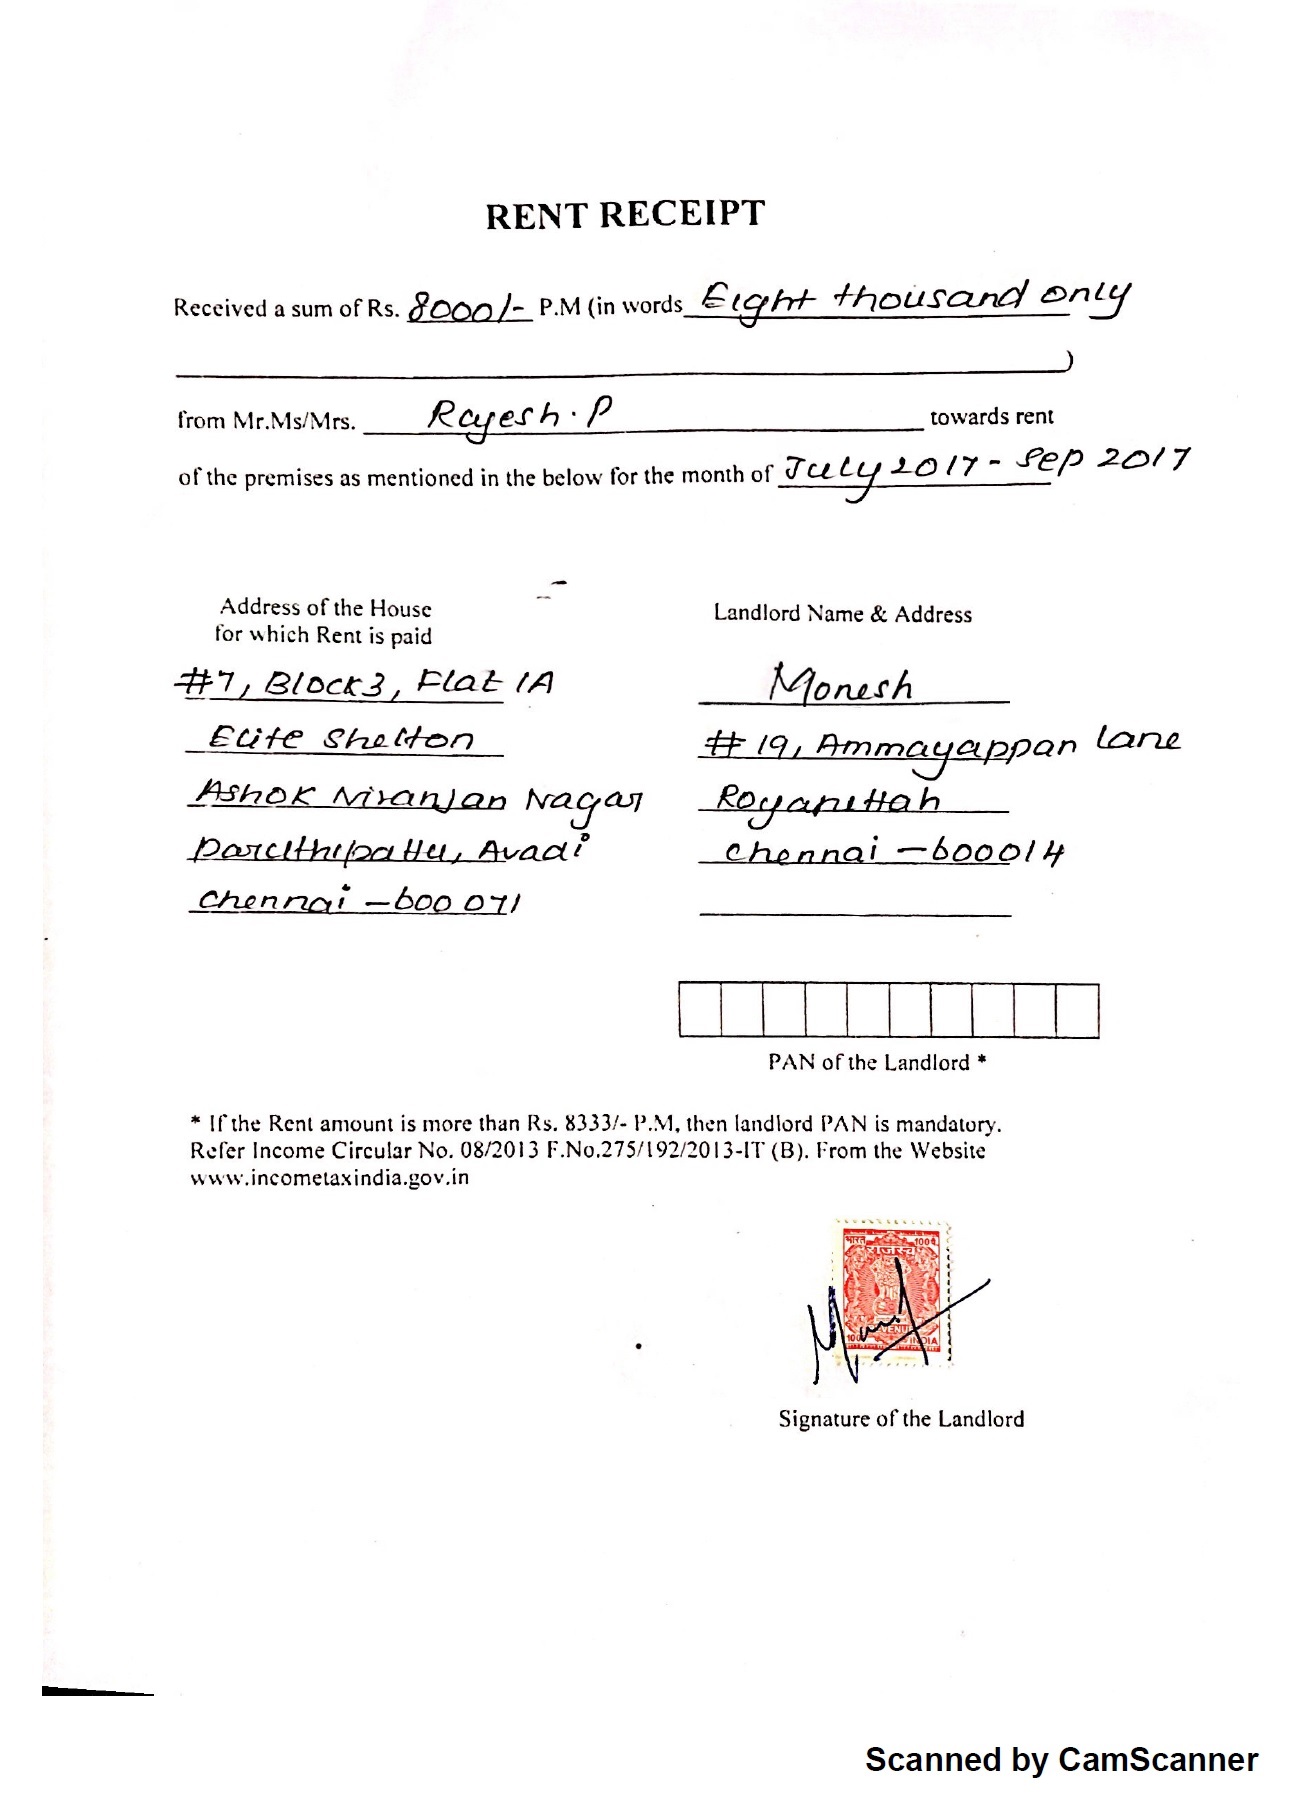 RENT RECEIPT
Received a sum of Rs. 8000/- P.M (in words Eight thousand only
)
from Mr.Ms/Mrs. Rajesh.P towards rent
of the premises as mentioned in the below for the month of July 2017 - Sep 2017
Address of the House
for which Rent is paid
#7, Block3, Flat 1A
Elite Shelton
Ashok Niranjan Nagar
Paruthipattu, Avadi
Chennai - 600 071
Landlord Name & Address
Monesh
# 19, Ammayappan Lane
Royapettah
Chennai - 600014
PAN of the Landlord *
* If the Rent amount is more than Rs. 8333/- P.M, then landlord PAN is mandatory.
Refer Income Circular No. 08/2013 F.No.275/192/2013-IT (B). From the Website
www.incometaxindia.gov.in
भारत 100
राजस्व
100 INDIA
Signature of the Landlord
Scanned by CamScanner